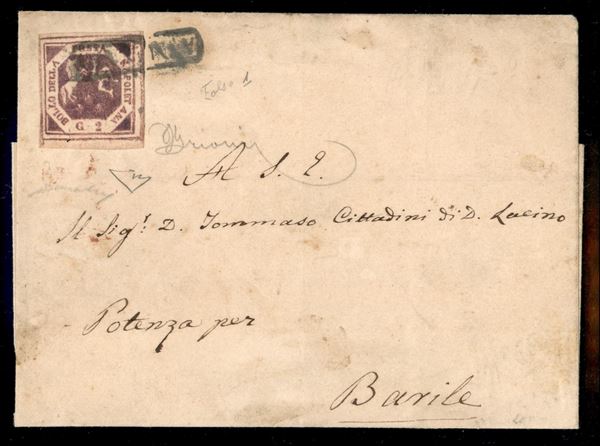 BOLLO DELLA
POSTA
NAPOLETANA
G. 2
Falso 1
A S. E.
Il Sigr. D. Tommaso Cittadini di D. Lucino
Potenza per
Barile